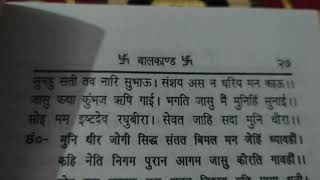 卐 बालकाण्ड 卐 २७
सुनहु सती तव नारि सुभाऊ। संसय अस न धरिय मन काऊ।।
जासु कथा कुंभज ऋषि गाई। भगति जासु मैं मुनिहिं सुनाई।।
सोइ मम इष्टदेव रघुबीरा। सेवत जाहि सदा मुनि धीरा।।
छं०- मुनि धीर जोगी सिद्ध संतत बिमल मन जेहिं ध्यावहीं।
कहि नेति निगम पुरान आगम जासु कीरति गावहीं।